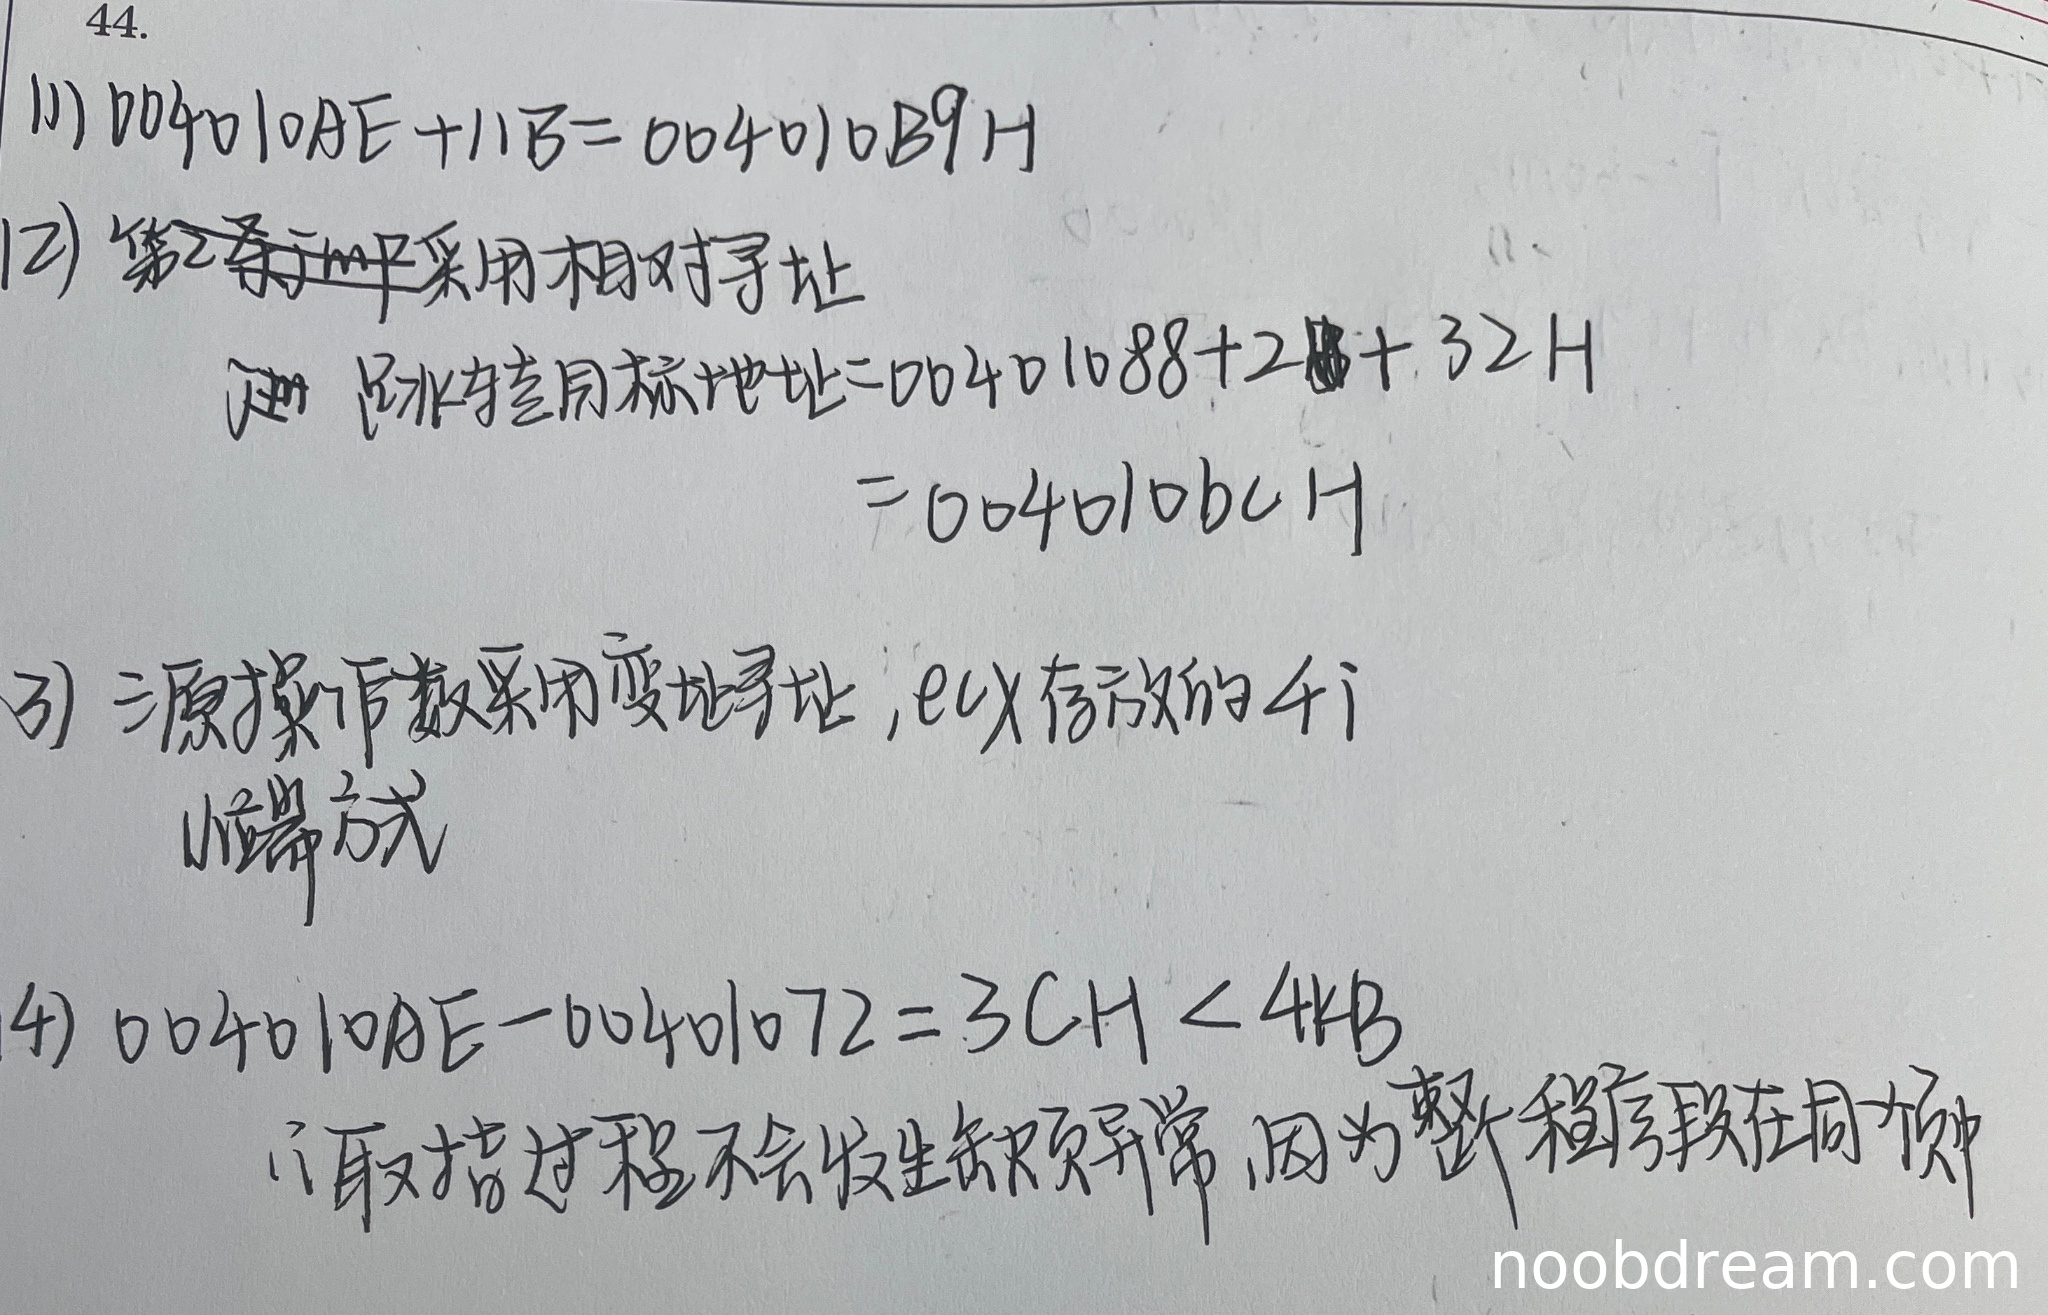 44.
(1) 004010AE+11B=004010B9H
(2) 采用相对寻址
跳转目标地址=00401088+2+32H
=004010bCH
(3) 源操作数采用变址寻址,ecx存放的4i
小端方式
(4) 004010AE-00401072=3CH<4KB
∴取指过程不会发生缺页异常,因为整个程序段在同一个页中
noobdream.com